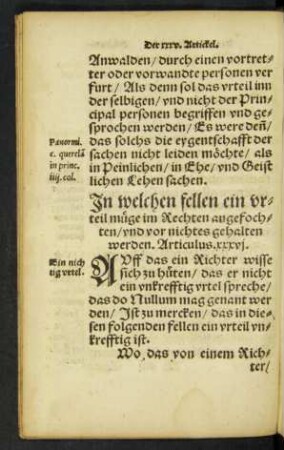 Der xxxv. Artickel.
Anwalden/ durch einen vortret-
ter oder vorwandte personen ver
furt/ Als denn sol das vrteil inn
der selbigen/ vnd nicht der Prin-
cipal personen begriffen vnd ge-
sprochen werden/ Es were deñ/
das solchs die eygentschafft der
sachen nicht leiden möchte/ als
in Peinlichen/ in Ehe/ vnd Geist
lichen Lehen sachen.
Panormi.
c. querelã
in princ.
iiij. col.
In welchen fellen ein vr-
teil müge im Rechten angefoch-
ten/ vnd vor nichtes gehalten
werden. Articulus.xxxvj.
Ein nich
tig vrtel.
AVff das ein Richter wisse
sich zu hüten/ das er nicht
ein vnkrefftig vrtel spreche/
das do Nullum mag genant wer
den/ Ist zu mercken/ das in die-
sen folgenden fellen ein vrteil vn-
krefftig ist.
Wo das von einem Rich-
ter/